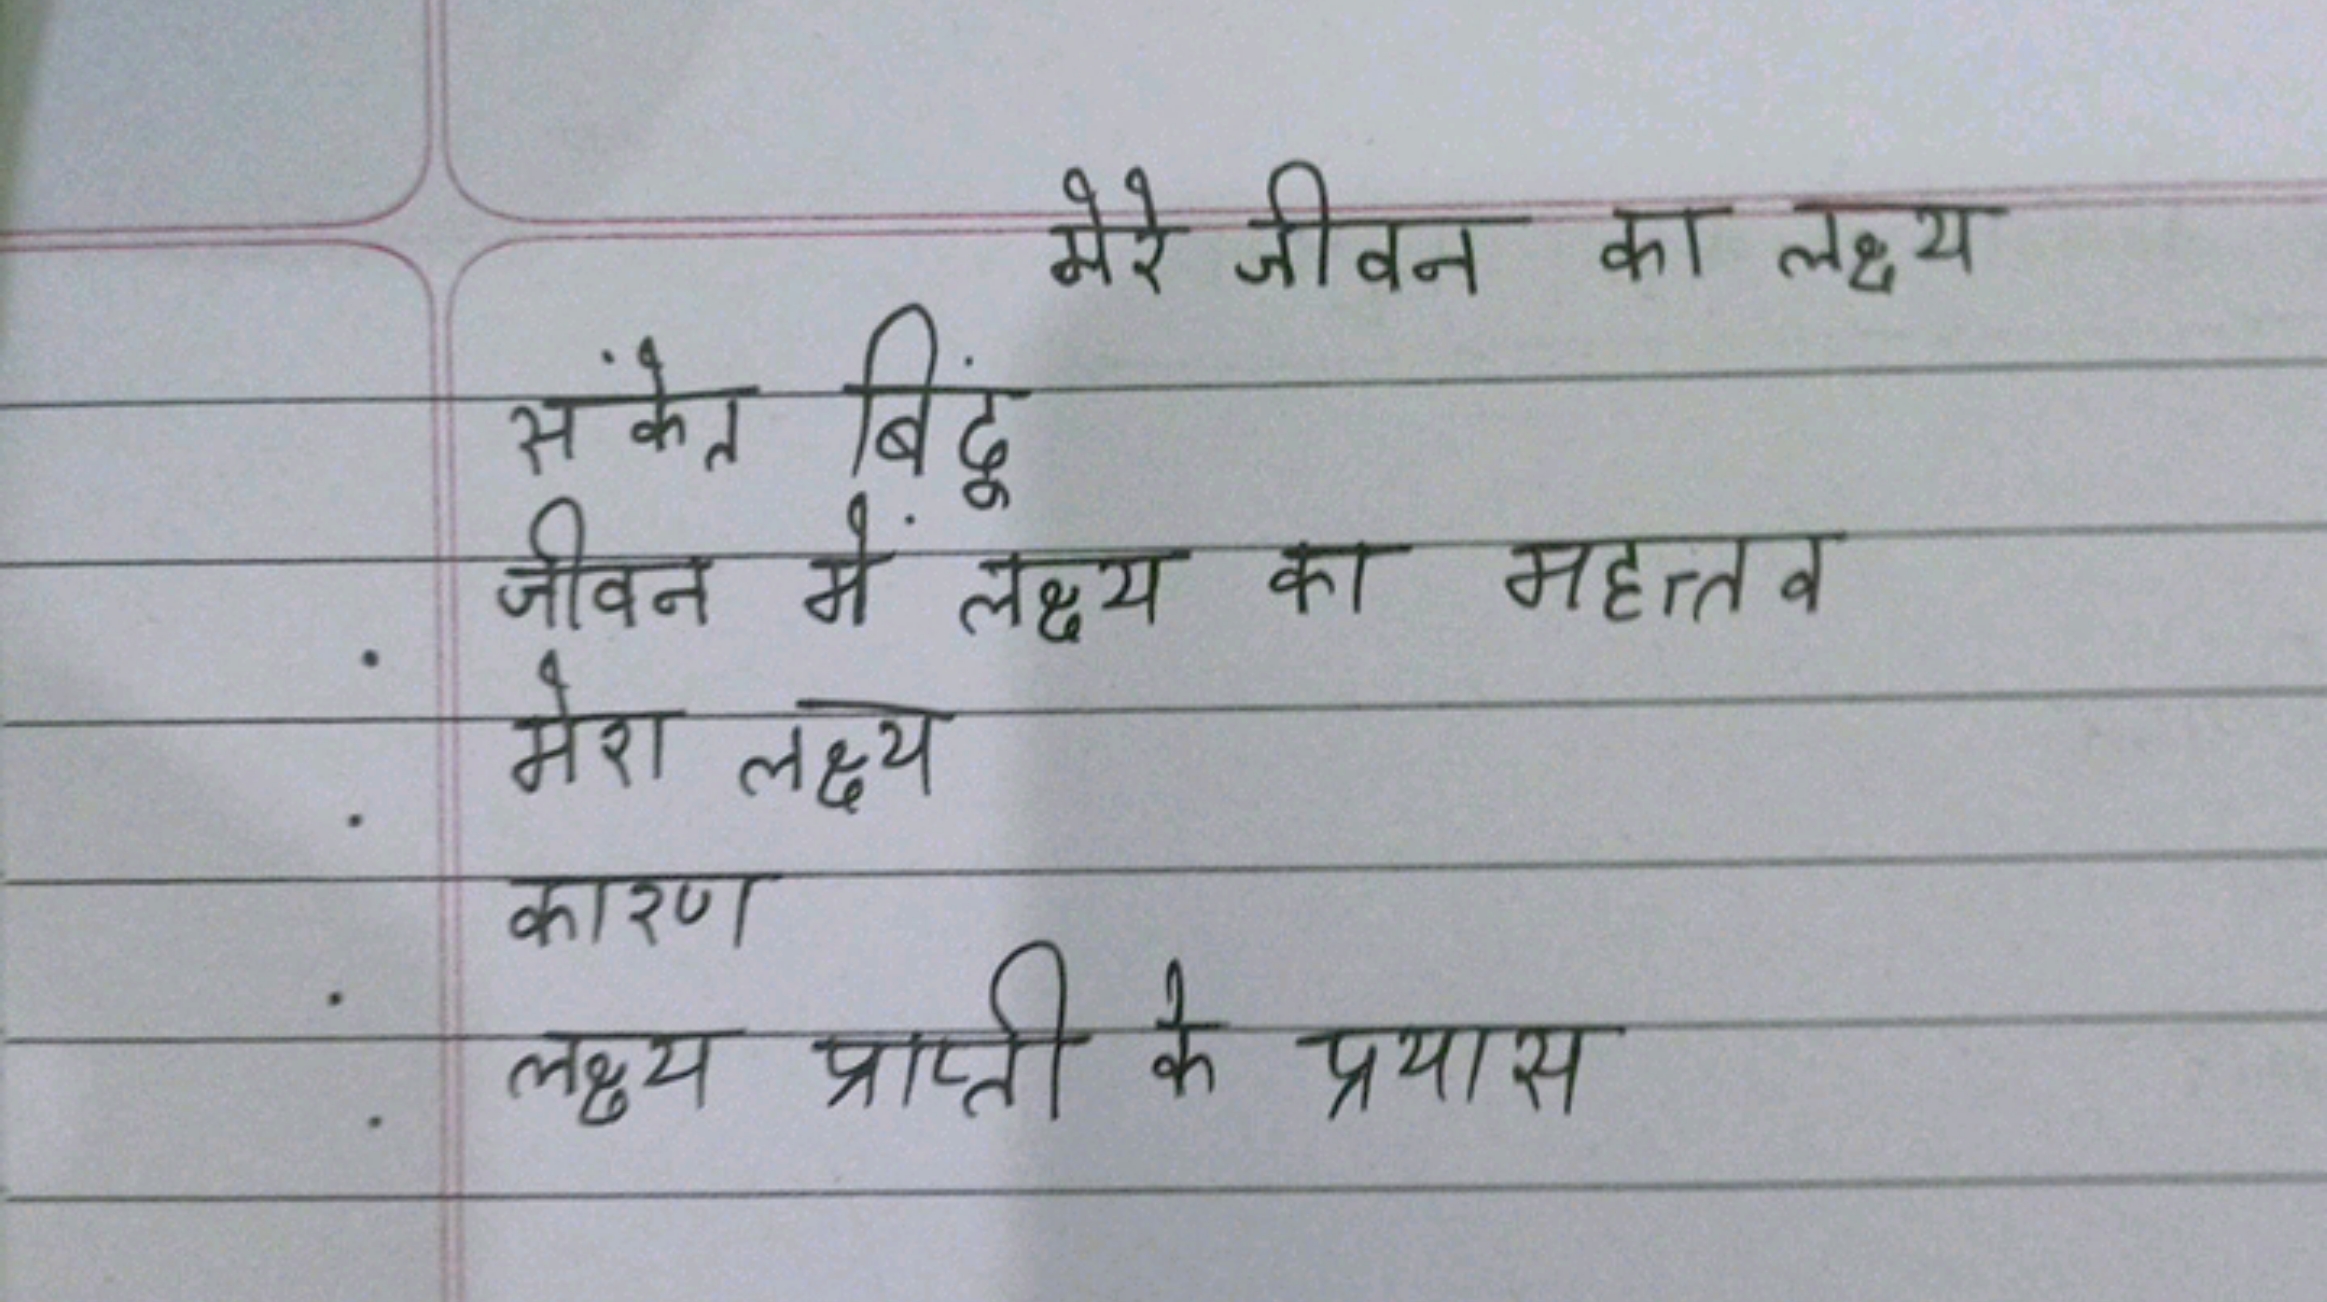 मेरे जीवन का लक्ष्य
संकेत बिंदू
जीवन में लक्ष्य का महत्तव
मेरा लक्ष्य
कारण
लक्ष्य प्राप्ती के प्रयास